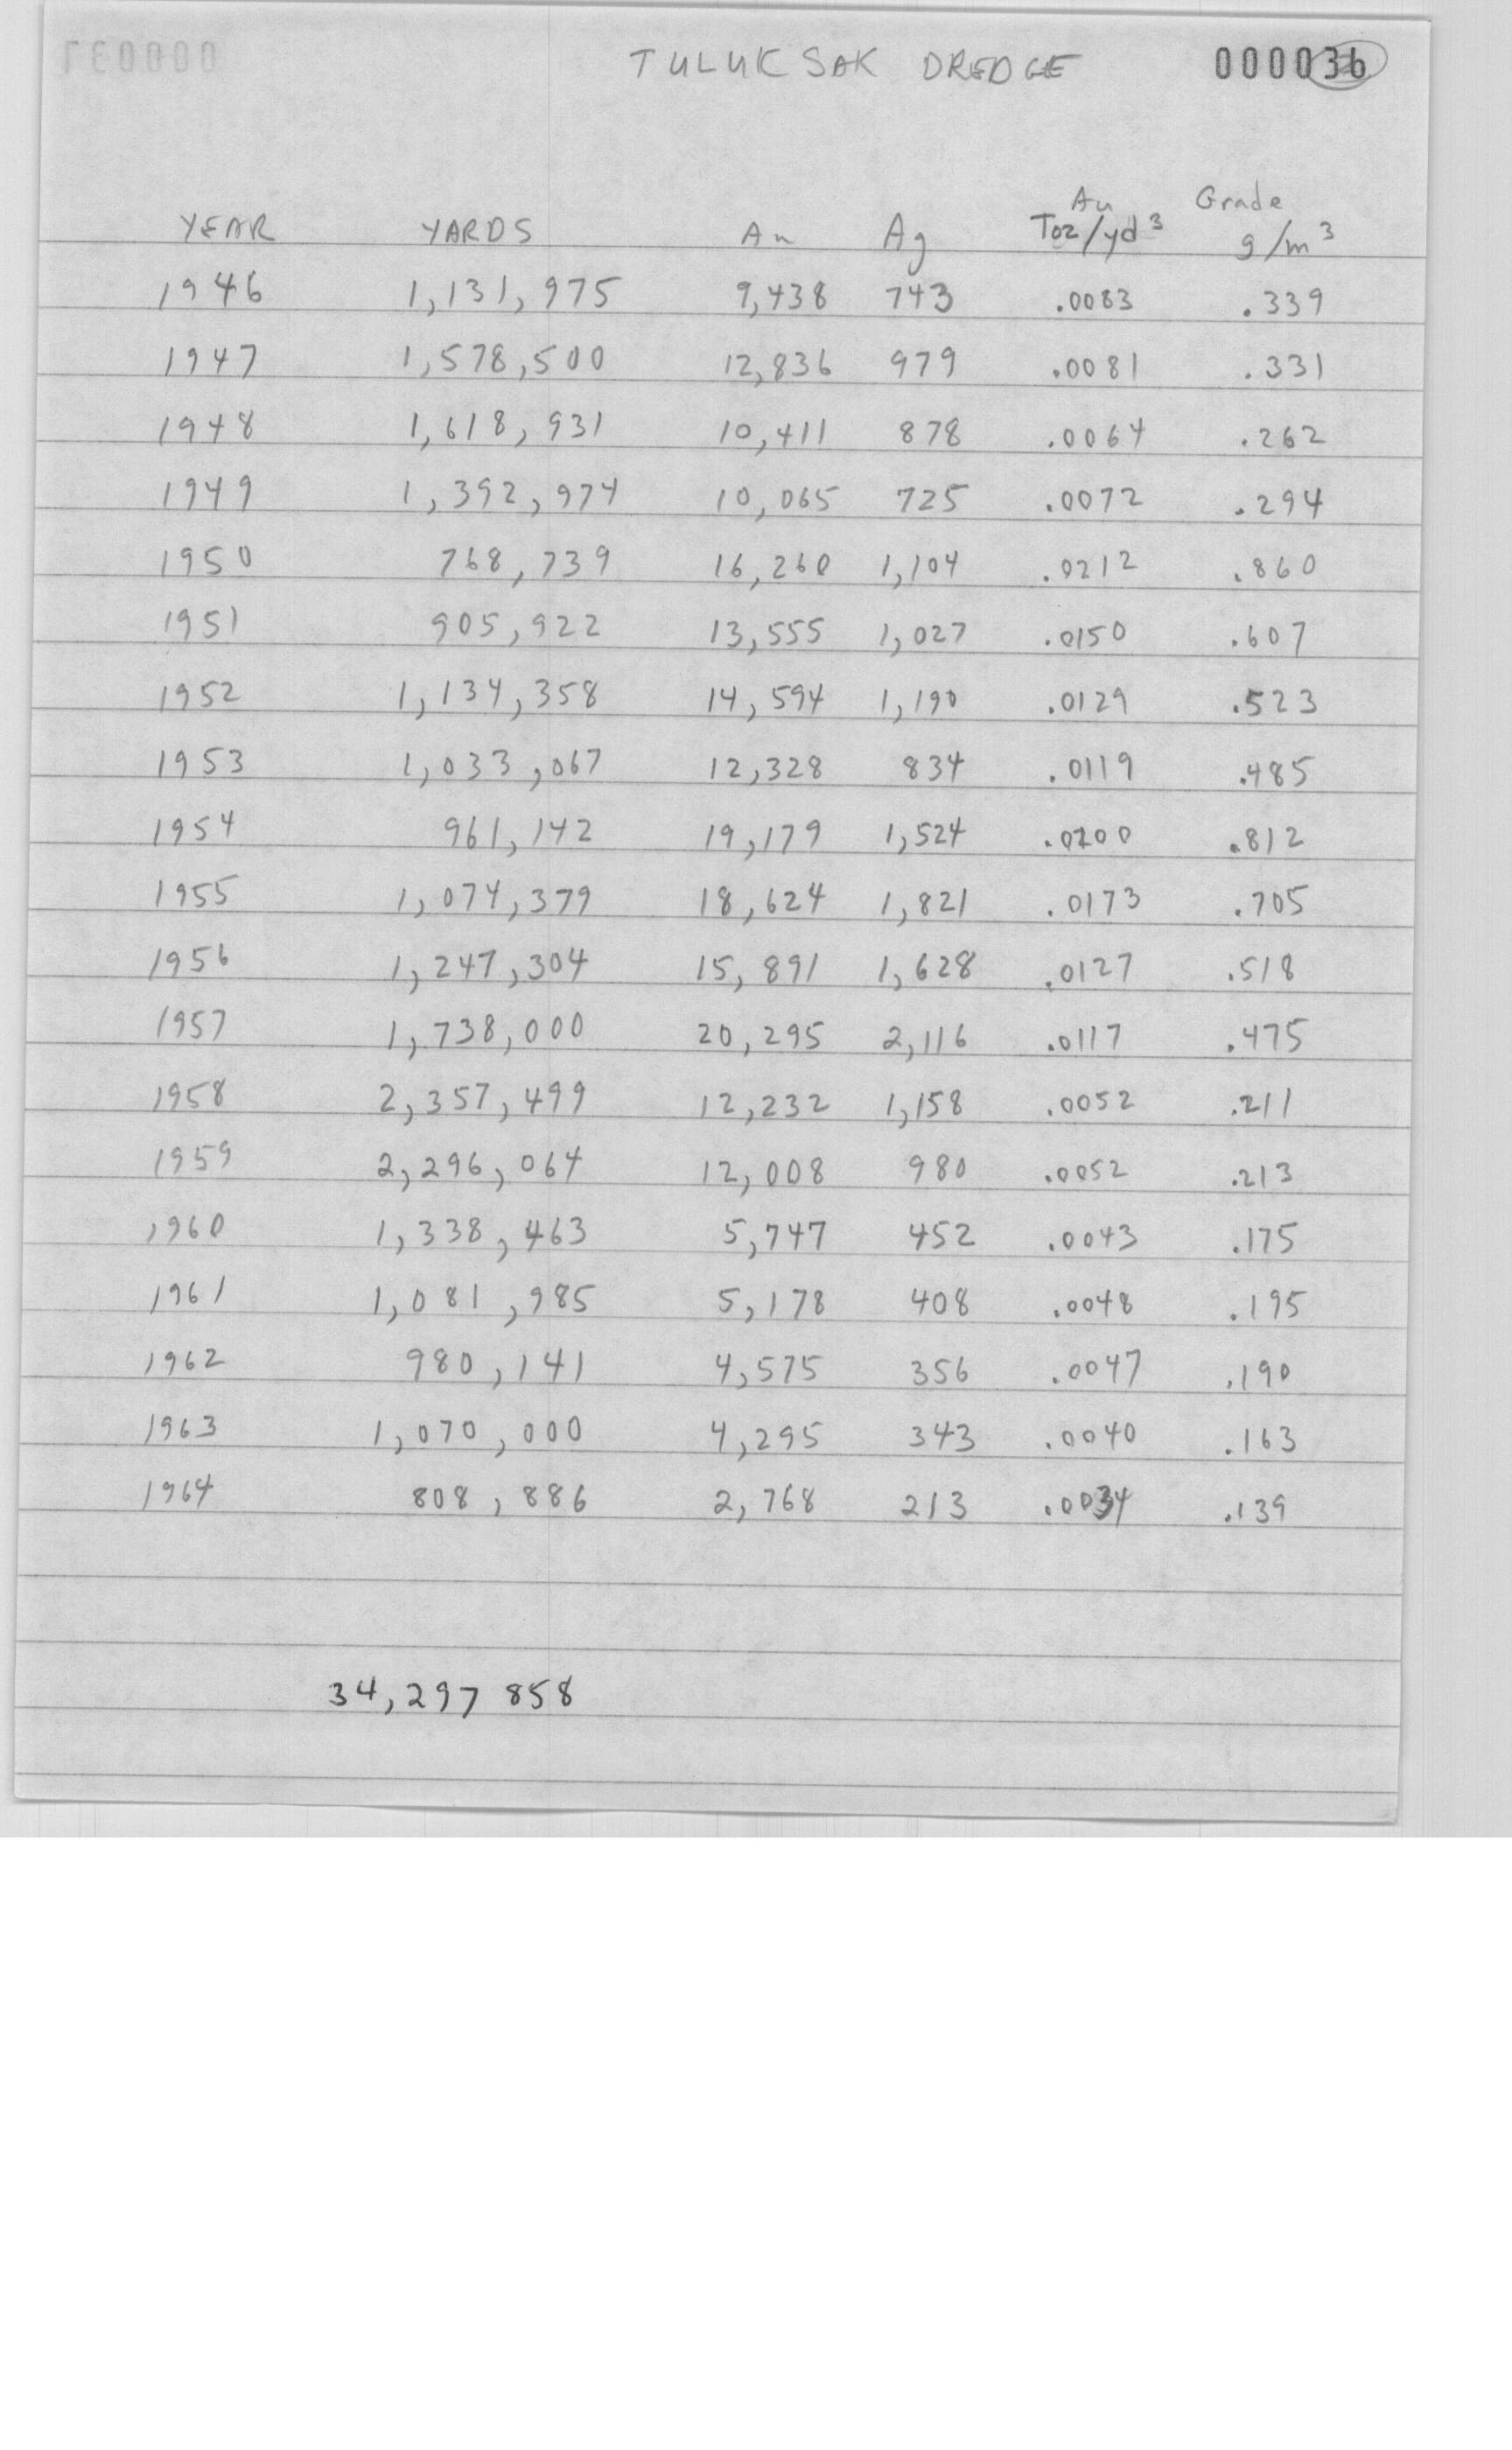 TULUKSAK DREDGE 000036
Au Grade
YEAR YARDS Au Ag Toz/yd³ g/m³
1946 1,131,975 9,438 743 .0083 .339
1947 1,578,500 12,836 979 .0081 .331
1948 1,618,931 10,411 878 .0064 .262
1949 1,392,974 10,065 725 .0072 .294
1950 768,739 16,260 1,104 .0212 .860
1951 905,922 13,555 1,027 .0150 .607
1952 1,134,358 14,594 1,190 .0129 .523
1953 1,033,067 12,328 834 .0119 .485
1954 961,142 19,179 1,524 .0200 .812
1955 1,074,379 18,624 1,821 .0173 .705
1956 1,247,304 15,891 1,628 .0127 .518
1957 1,738,000 20,295 2,116 .0117 .475
1958 2,357,499 12,232 1,158 .0052 .211
1959 2,296,064 12,008 980 .0052 .213
1960 1,338,463 5,747 452 .0043 .175
1961 1,081,985 5,178 408 .0048 .195
1962 980,141 4,575 356 .0047 .190
1963 1,070,000 4,295 343 .0040 .163
1964 808,886 2,768 213 .0034 .139
34,297 858